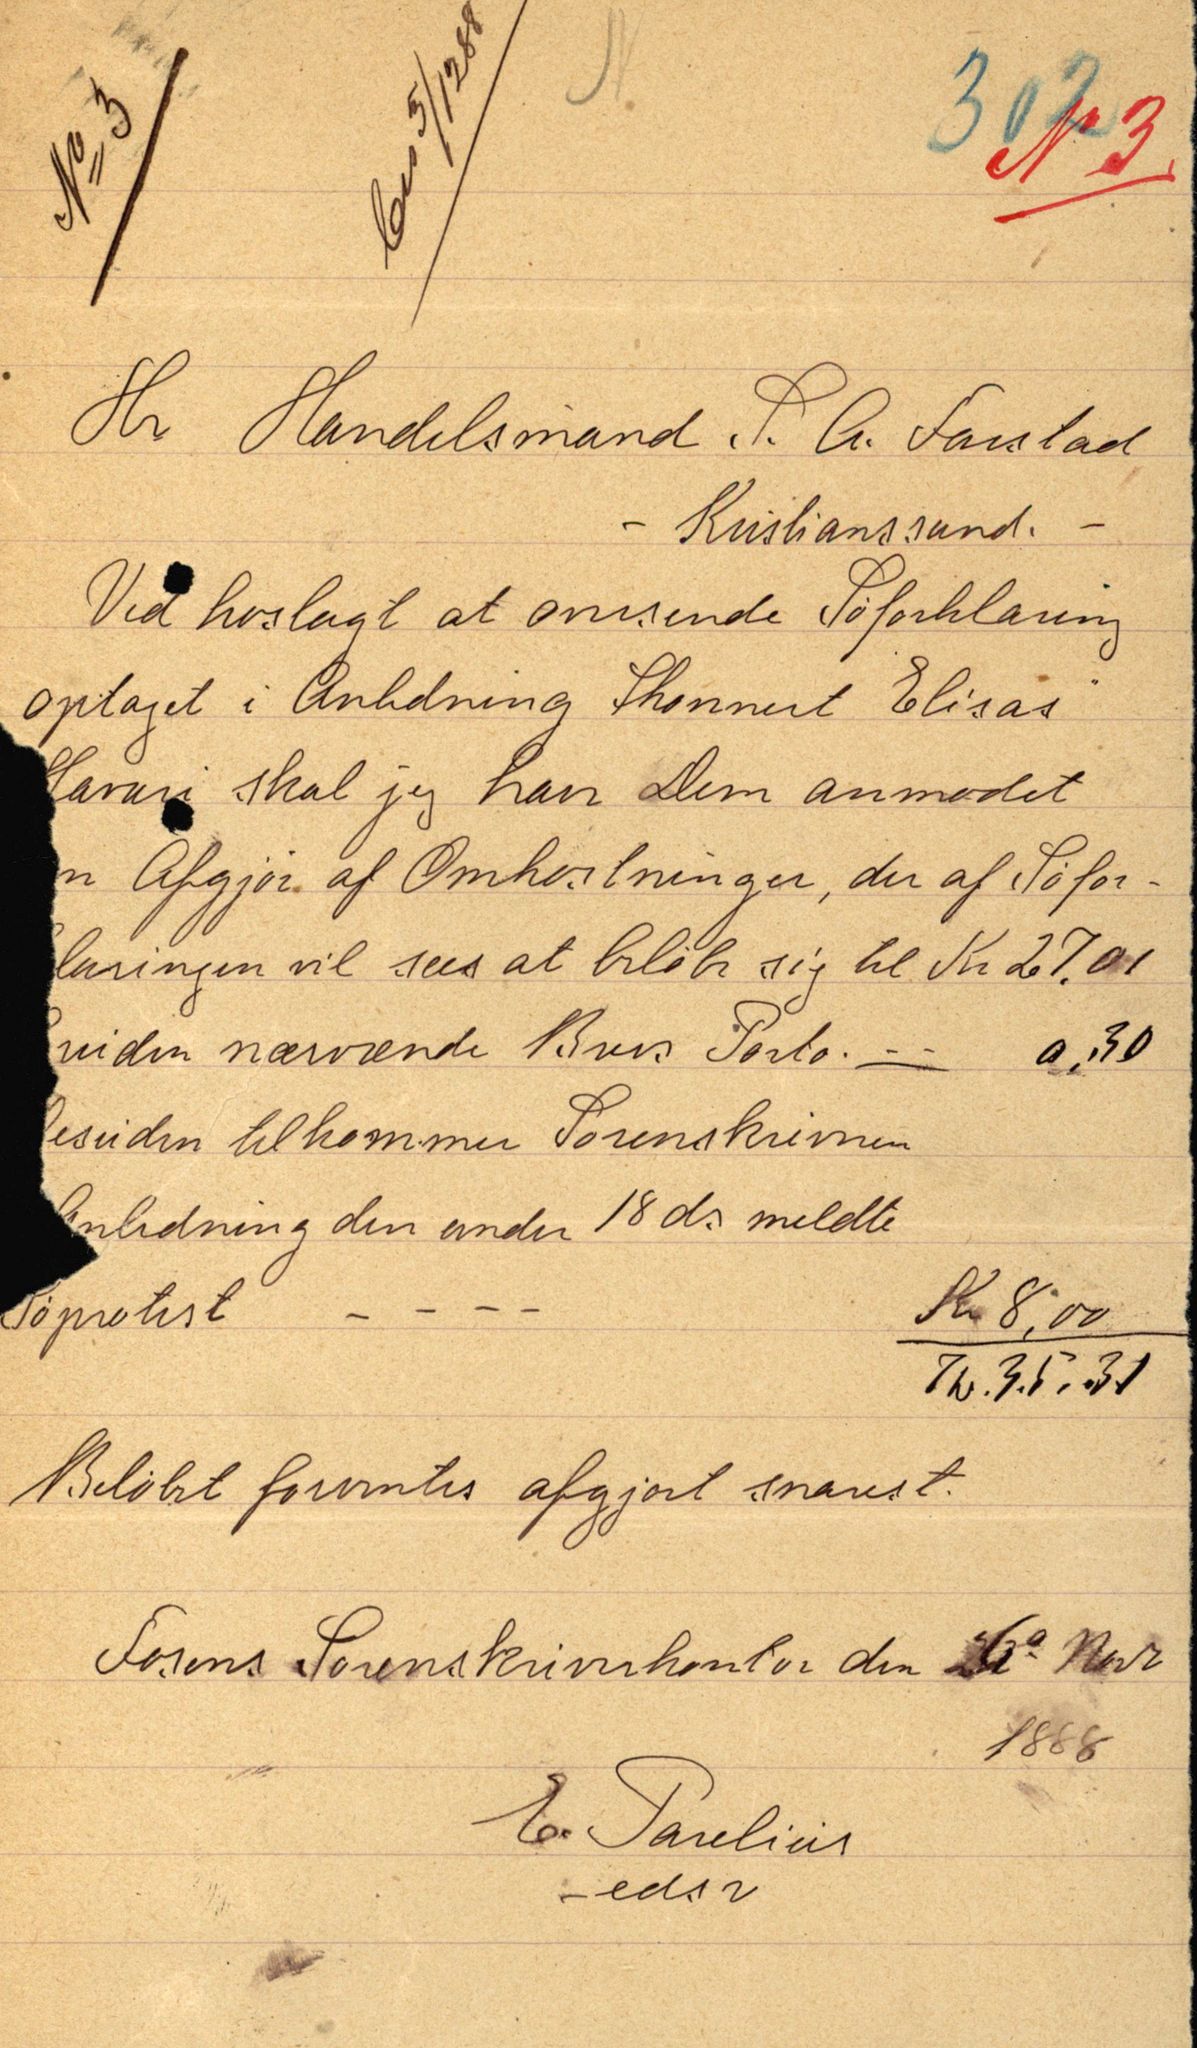 No 3
5/12 88
302
No 3.
Hr Handelsmand P. A. Farstad
- Kristianssund. -
Ved hoslagt at oversende Søforklaring
optaget i Anledning Skonnert Elisas"
Havari skal jeg have Dem anmodet
m Afgjør af Omkostninger, der af Søfor-
laringen vil sees at beløbe sig til Kr 27,01
uden nærværende Brevs Porto. - - 0,30
esuden tilkommer Sorenskriveren
Anledning den under 18 ds meldte
Søprotest - - - - Kr 8,00
Kr. 35.31
Beløbet forventes afgjort snarest.
Fosens Sorenskriverkontor den Novr
1888
E. Parelius
- edsv